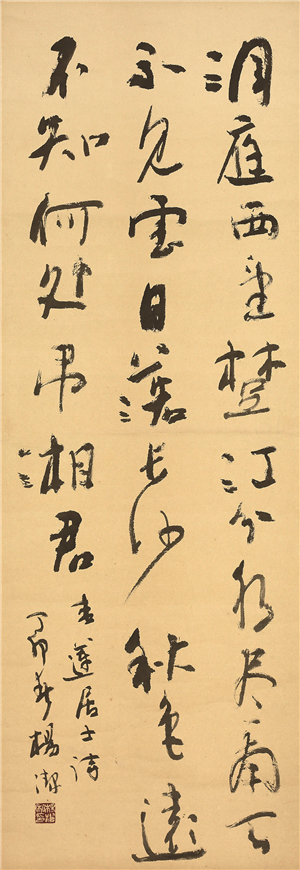 洞庭西望楚江分水尽南天
不见雲日落长沙秋色遠
不知何处吊湘君
青蓮居士詩
丁卯春楊